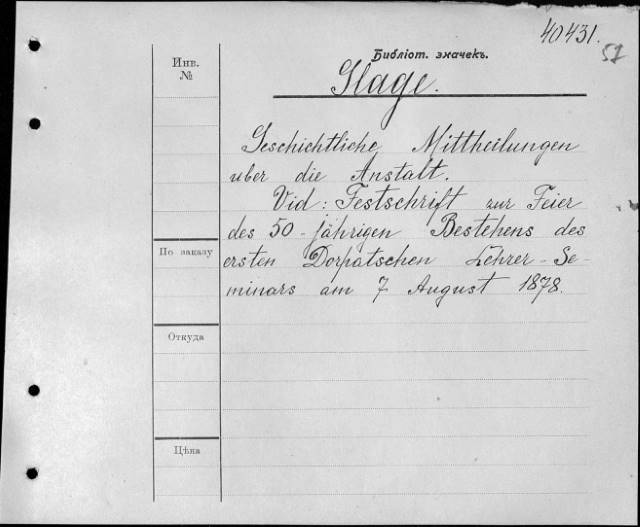 40431.
52
Библіот. значекъ.
Инв.
№
Hage.
Geschichtliche Mittheilungen
uber die Anstalt.
Vid: Festschrift zur Feier
des 50-jährigen Bestehens des
По заказу
ersten Dorpatschen Lehrer-Se-
minars am 7 August 1878.
Откуда
Цѣна